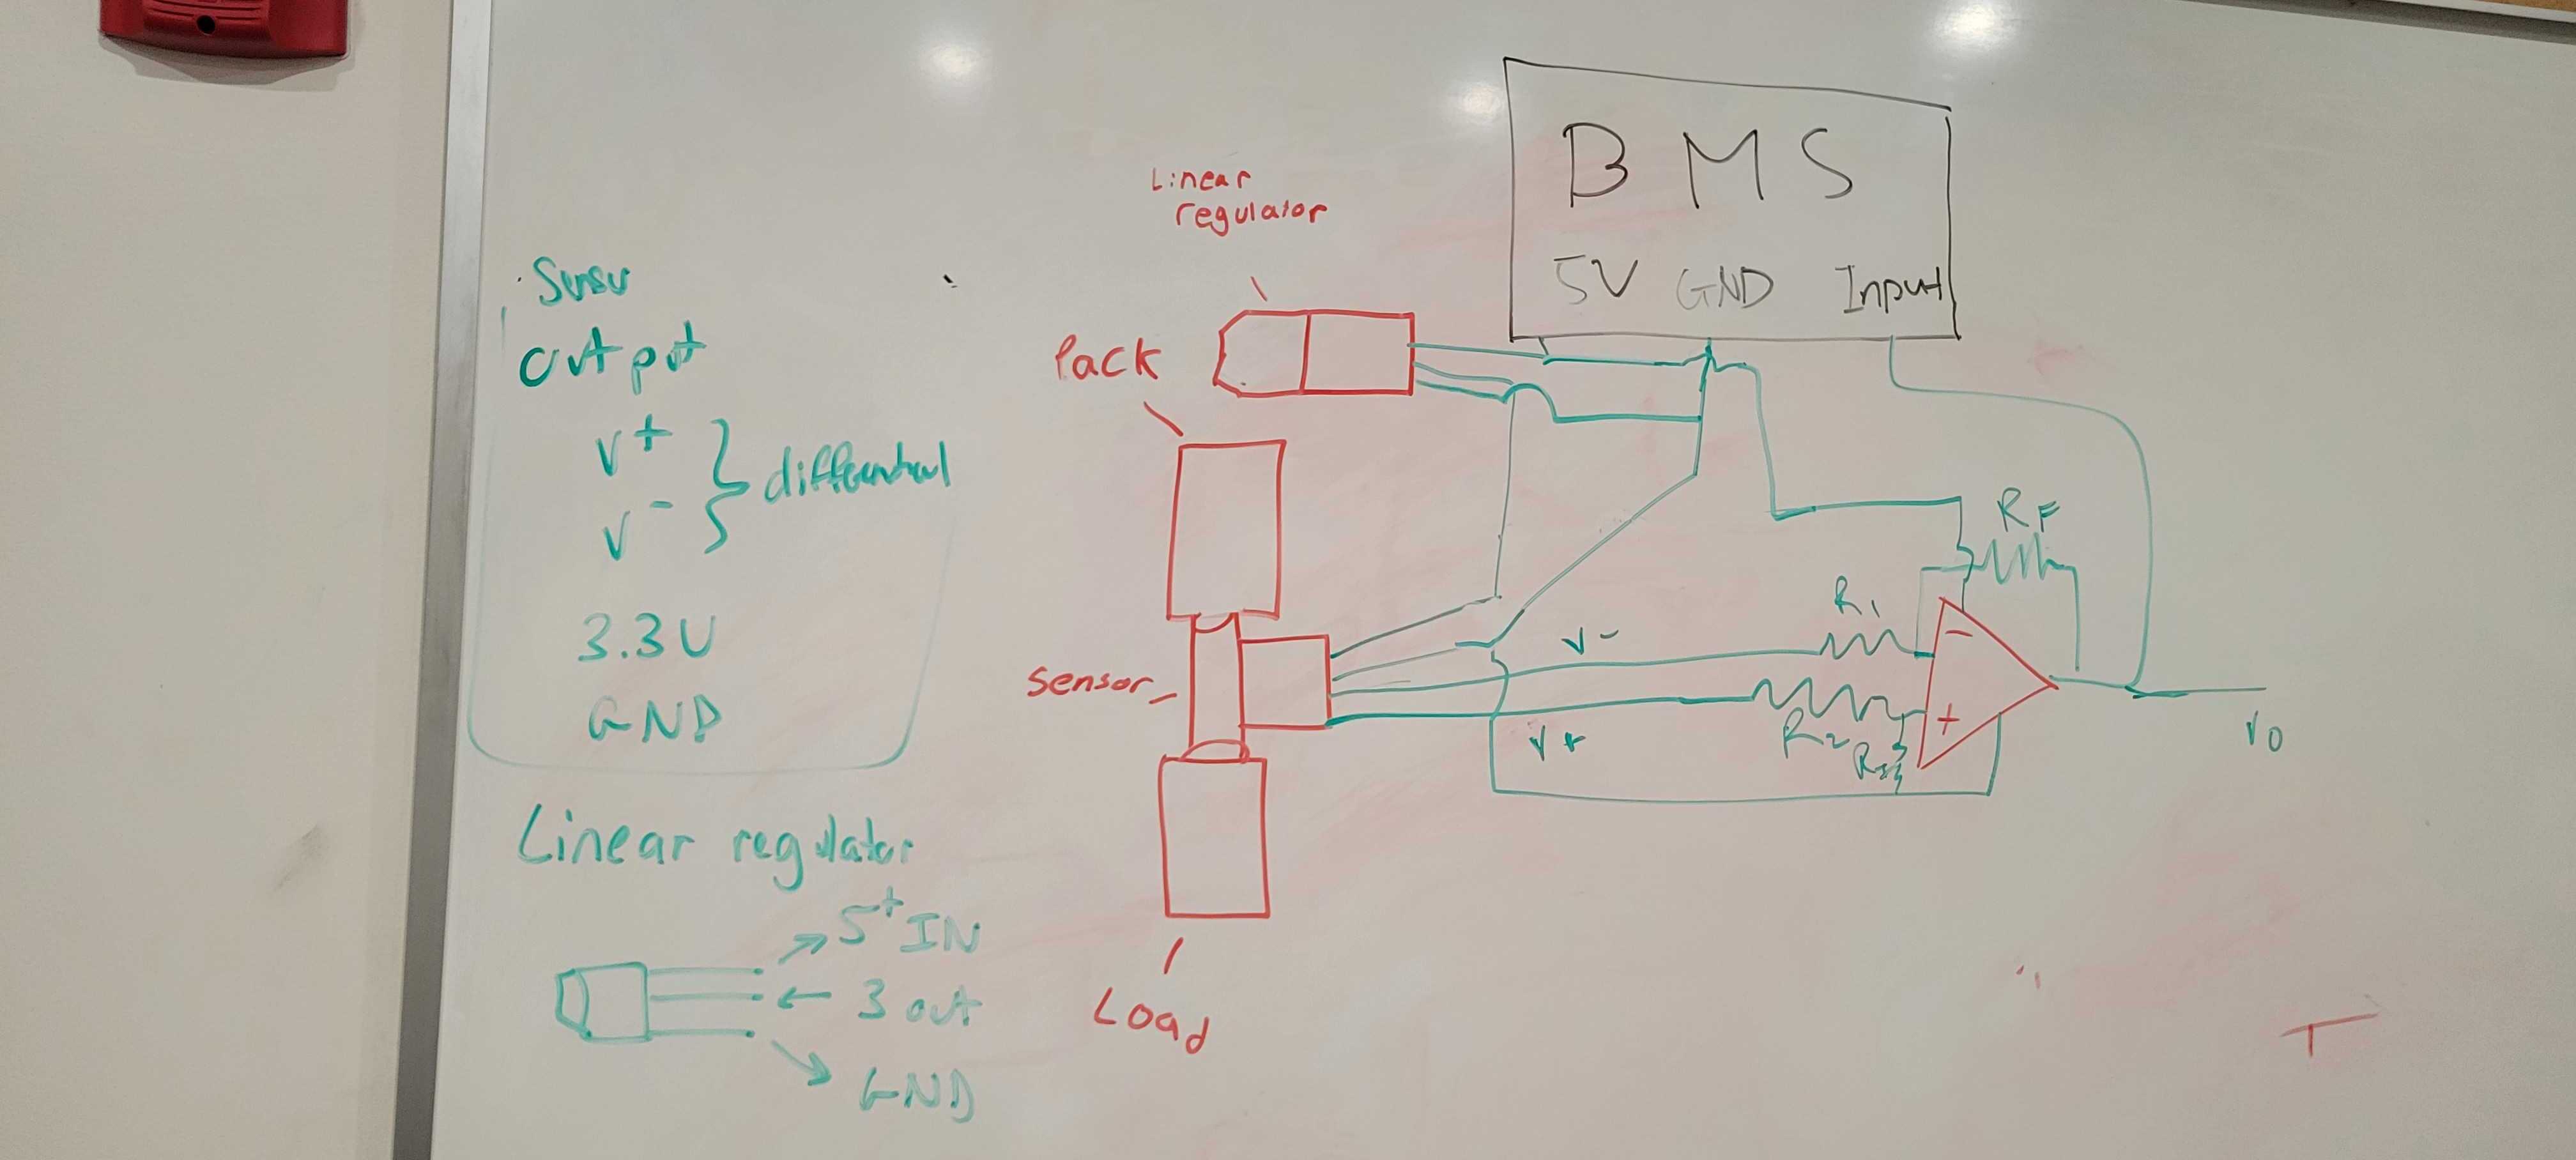 Sensor
Output
V+
V-
differential
3.3V
GND
Linear regulator
5+ IN
3 out
GND
Linear
regulator
Pack
Sensor
Load
BMS
5V GND Input
RF
R1
V-
V+
R2
VO